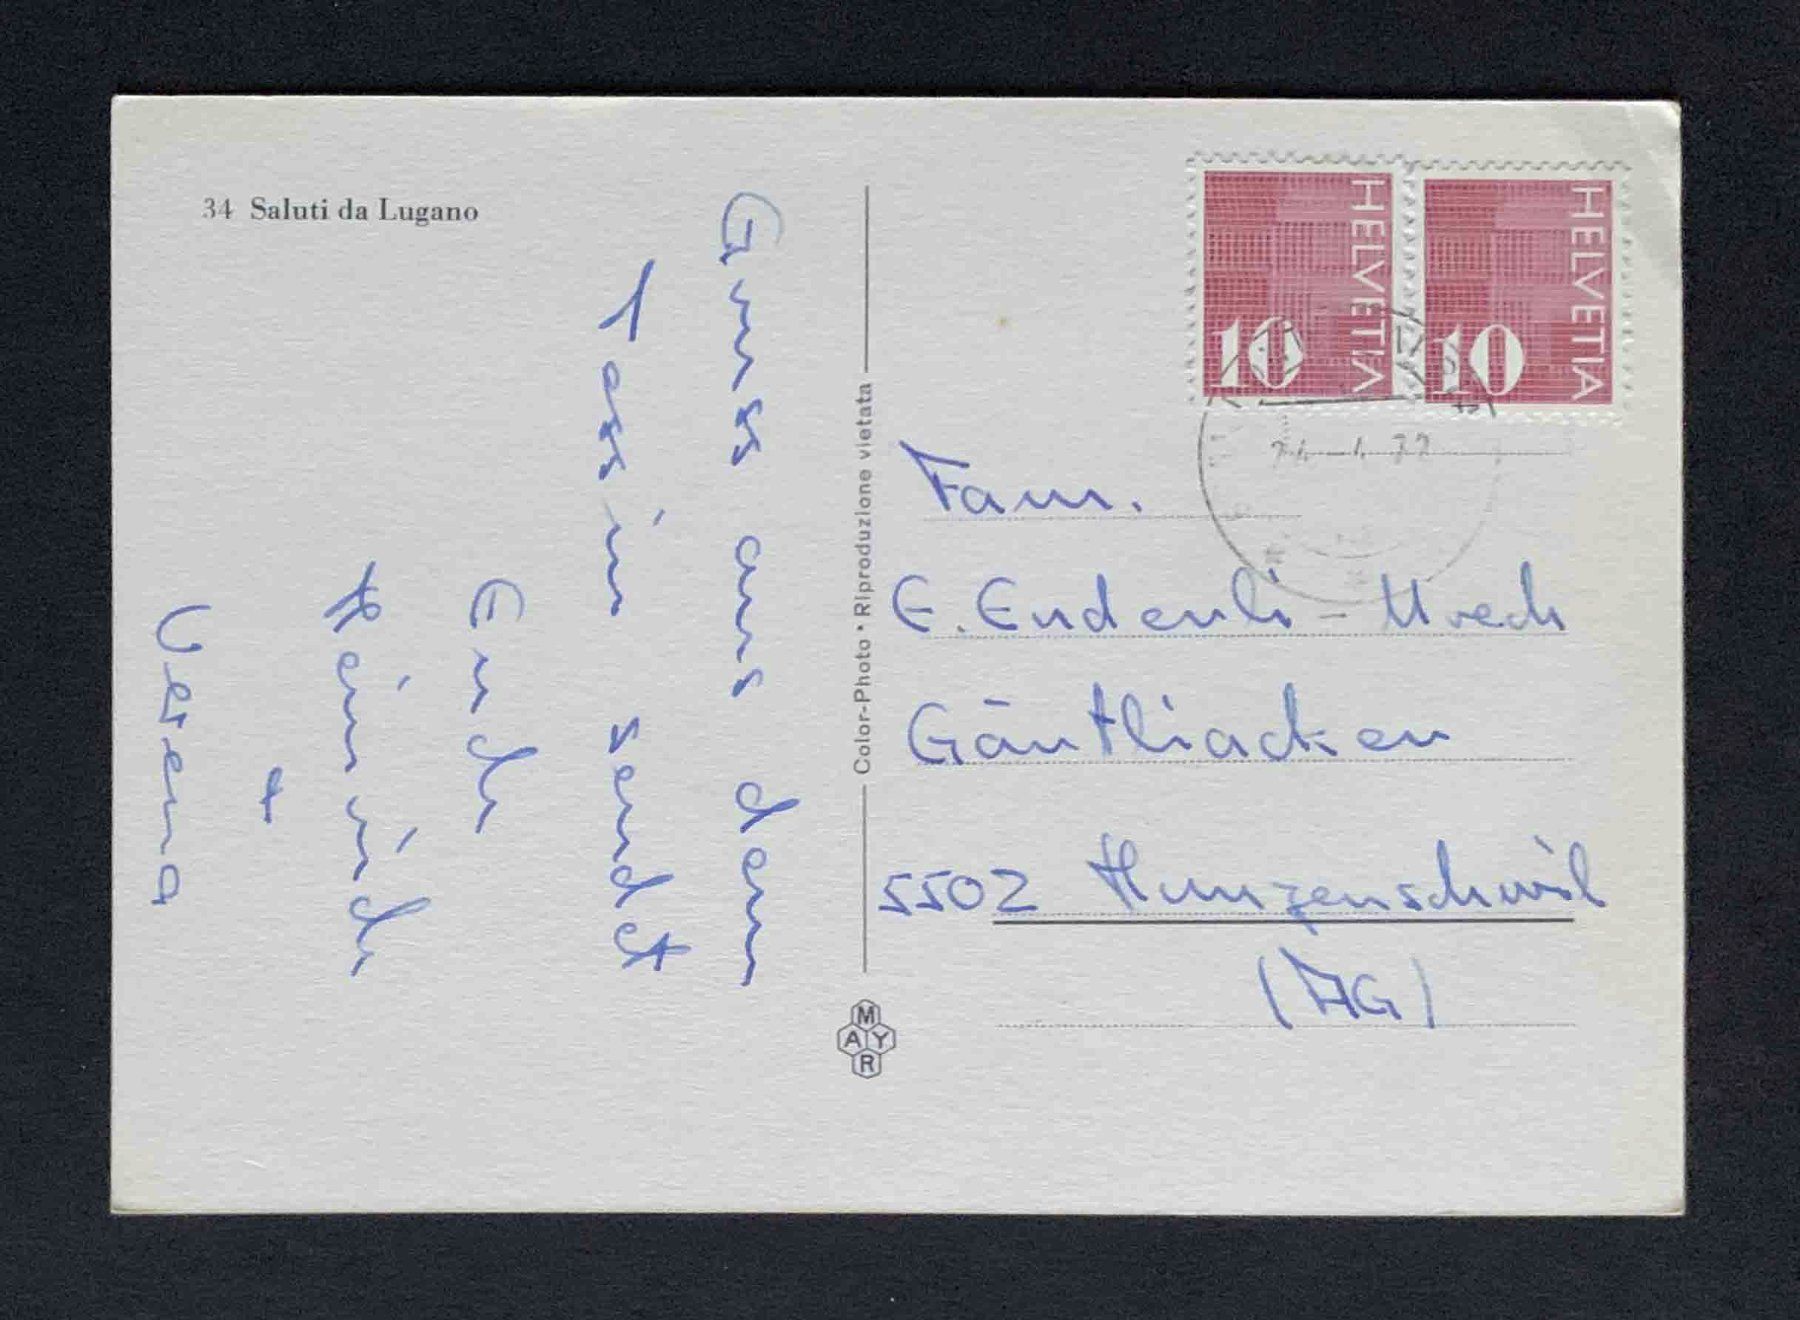 34 Saluti da Lugano
Gruss aus dem
Tessin sendet
Euch
Heinrich
+
Verena
Color-Photo • Riproduzione vietata
M
A Y
R
HELVETIA
10
HELVETIA
10
Fam.
E. Enderli - Urech
Gäntliacken
5502 Hunzenschwil
(AG)